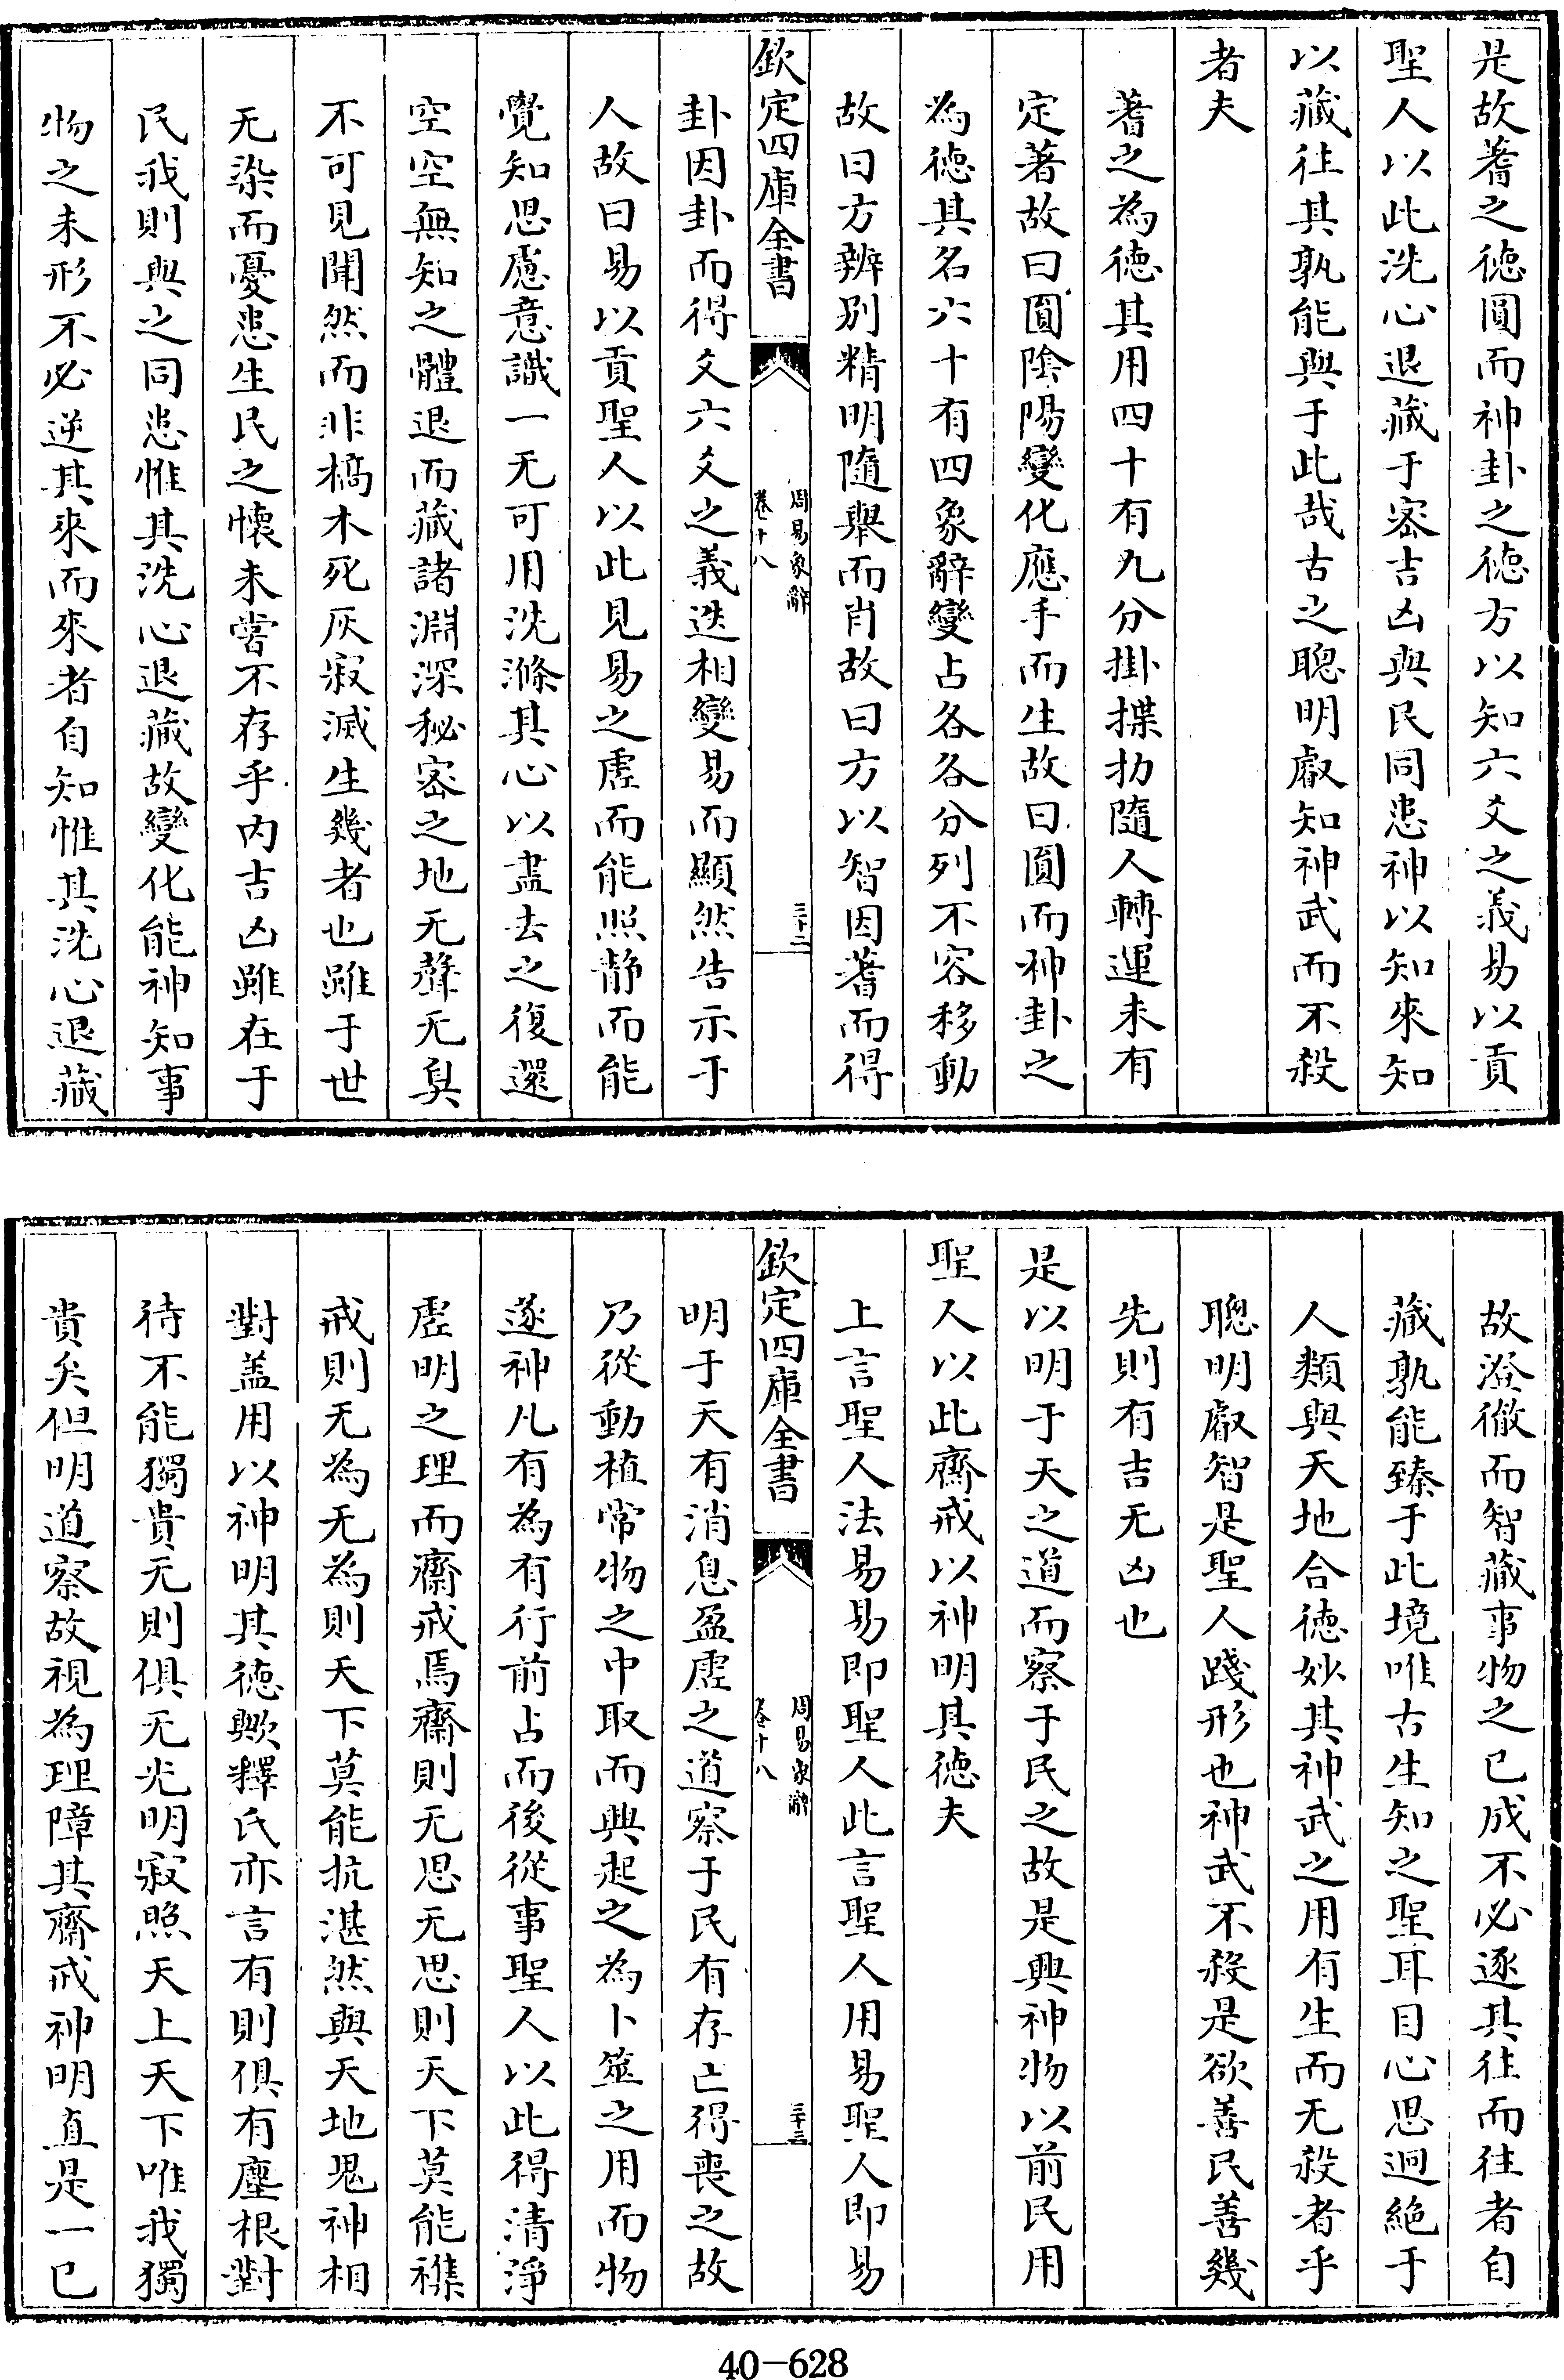 是故蓍之徳圓而神卦之徳方以知六爻之義易以貢
聖人以此洗心退藏于宻吉凶與民同患神以知來知
以藏往其孰能與于此哉古之聰明叡知神武而不殺
者夫
蓍之為徳其用四十有九分掛揲扐隨人轉運未有
定著故曰圓陰陽變化應手而生故曰圓而神卦之
為徳其名六十有四象辭變占各各分列不容移動
故曰方辨别精明隨舉而肖故曰方以智因蓍而得
欽定四庫全書
周易象辭
卷十八
三十二
卦因卦而得爻六爻之義迭相變易而顯然告示于
人故曰易以貢聖人以此見易之虚而能照静而能
覺知思慮意識一无可用洗滌其心以盡去之復還
空空無知之體退而藏諸淵深秘宻之地无聲无臭
不可見聞然而非槁木死灰寂滅生幾者也雖于世
无染而憂患生民之懷未嘗不存乎内吉凶雖在于
民我則與之同患惟其洗心退藏故變化能神知事
物之未形不必逆其來而來者自知惟其洗心退藏
故澄徹而智藏事物之已成不必逐其往而往者自
藏孰能臻于此境唯古生知之聖耳目心思迥絶于
人類與天地合徳妙其神武之用有生而无殺者乎
聰明叡智是聖人踐形也神武不殺是欲善民善幾
先則有吉无凶也
是以明于天之道而察于民之故是興神物以前民用
聖人以此齋戒以神明其徳夫
上言聖人法易易即聖人此言聖人用易聖人即易
欽定四庫全書
周易象辭
卷十八
三十三
明于天有消息盈虚之道察于民有存亡得喪之故
乃從動植常物之中取而興起之為卜筮之用而物
遂神凡有為有行前占而後從事聖人以此得清淨
虚明之理而齋戒焉齋則无思无思則天下莫能襍
戒則无為无為則天下莫能抗湛然與天地鬼神相
對盖用以神明其徳歟釋氏亦言有則俱有塵根對
待不能獨貴无則俱无光明寂照天上天下唯我獨
貴矣但明道察故視為理障其齋戒神明直是一已
40-628